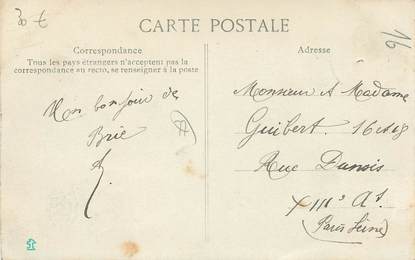 30 €
16
CARTE POSTALE
Correspondance
Tous les pays étrangers n'acceptent pas la
correspondance au recto, se renseigner à la poste
Mon bonjour de
Brie
Adresse
Monsieur & Madame
Guibert. 16
Rue Dunois
XIIIe Ar
(Paris Seine)